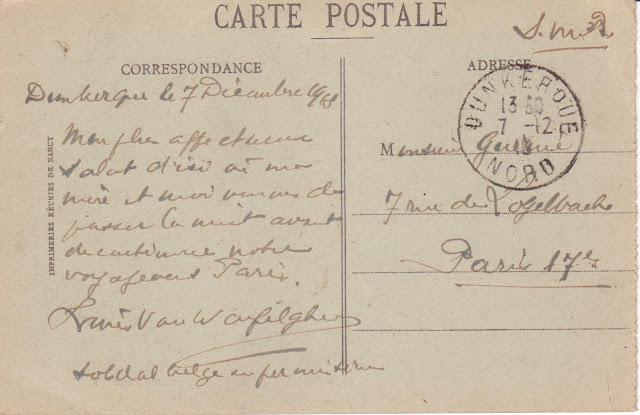 CARTE POSTALE
S. M.
CORRESPONDANCE
ADRESSE
Dunkerque le 7 Décembre 1918
Mon plus affectueux
salut d'ici où ma
mère et moi venons de
passer la nuit avant
de continuer notre
voyage vers Paris.
Louis Van
soldat belge en permission
IMPRIMERIES RÉUNIES DE NANCY
DUNKERQUE
13
7 -12
NORD
Monsieur
7 rue de Logelbach
Paris 17e